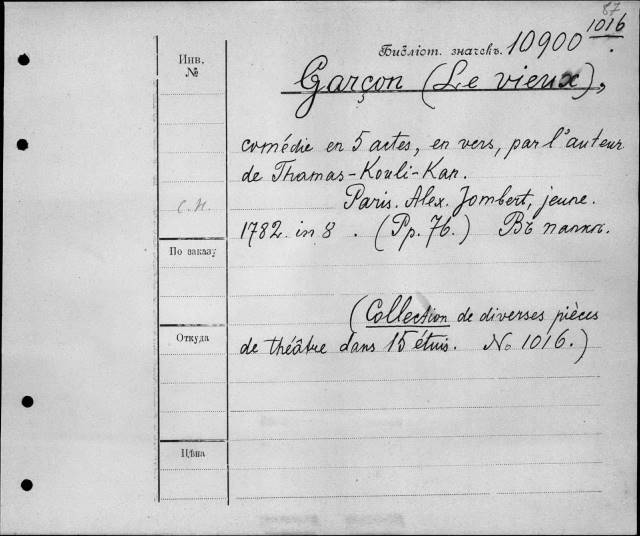 87
1016
Библіот. значекъ. 10900
Инв.
№
Garçon (Le vieux),
comédie en 5 actes, en vers, par l'auteur
de Thamas-Kouli-Kan.
С.Н.
Paris. Alex. Jombert, jeune.
1782. in 8. (Pp. 76.) Въ папкѣ.
По заказу
(Collection de diverses pièces
Откуда
de théâtre dans 15 étuis. No 1016.)
Цѣна